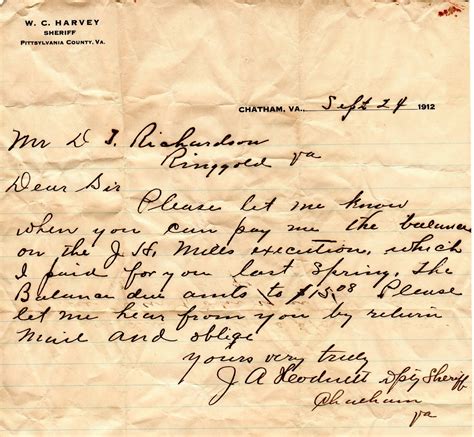 W. C. HARVEY
SHERIFF
PITTSYLVANIA COUNTY, VA.
CHATHAM, VA., Sept 24 1912
Mr D. I. Richardson
Ringgold Va
Dear Sir
Please let me know
when you can pay me the balance
on the J. H. Mills execution, which
I paid for you last Spring. The
Balance due amts to $15.08 Please
let me hear from you by return
mail and oblige
yours very truly
J A Hodnett Dpty Sheriff
Chatham
va